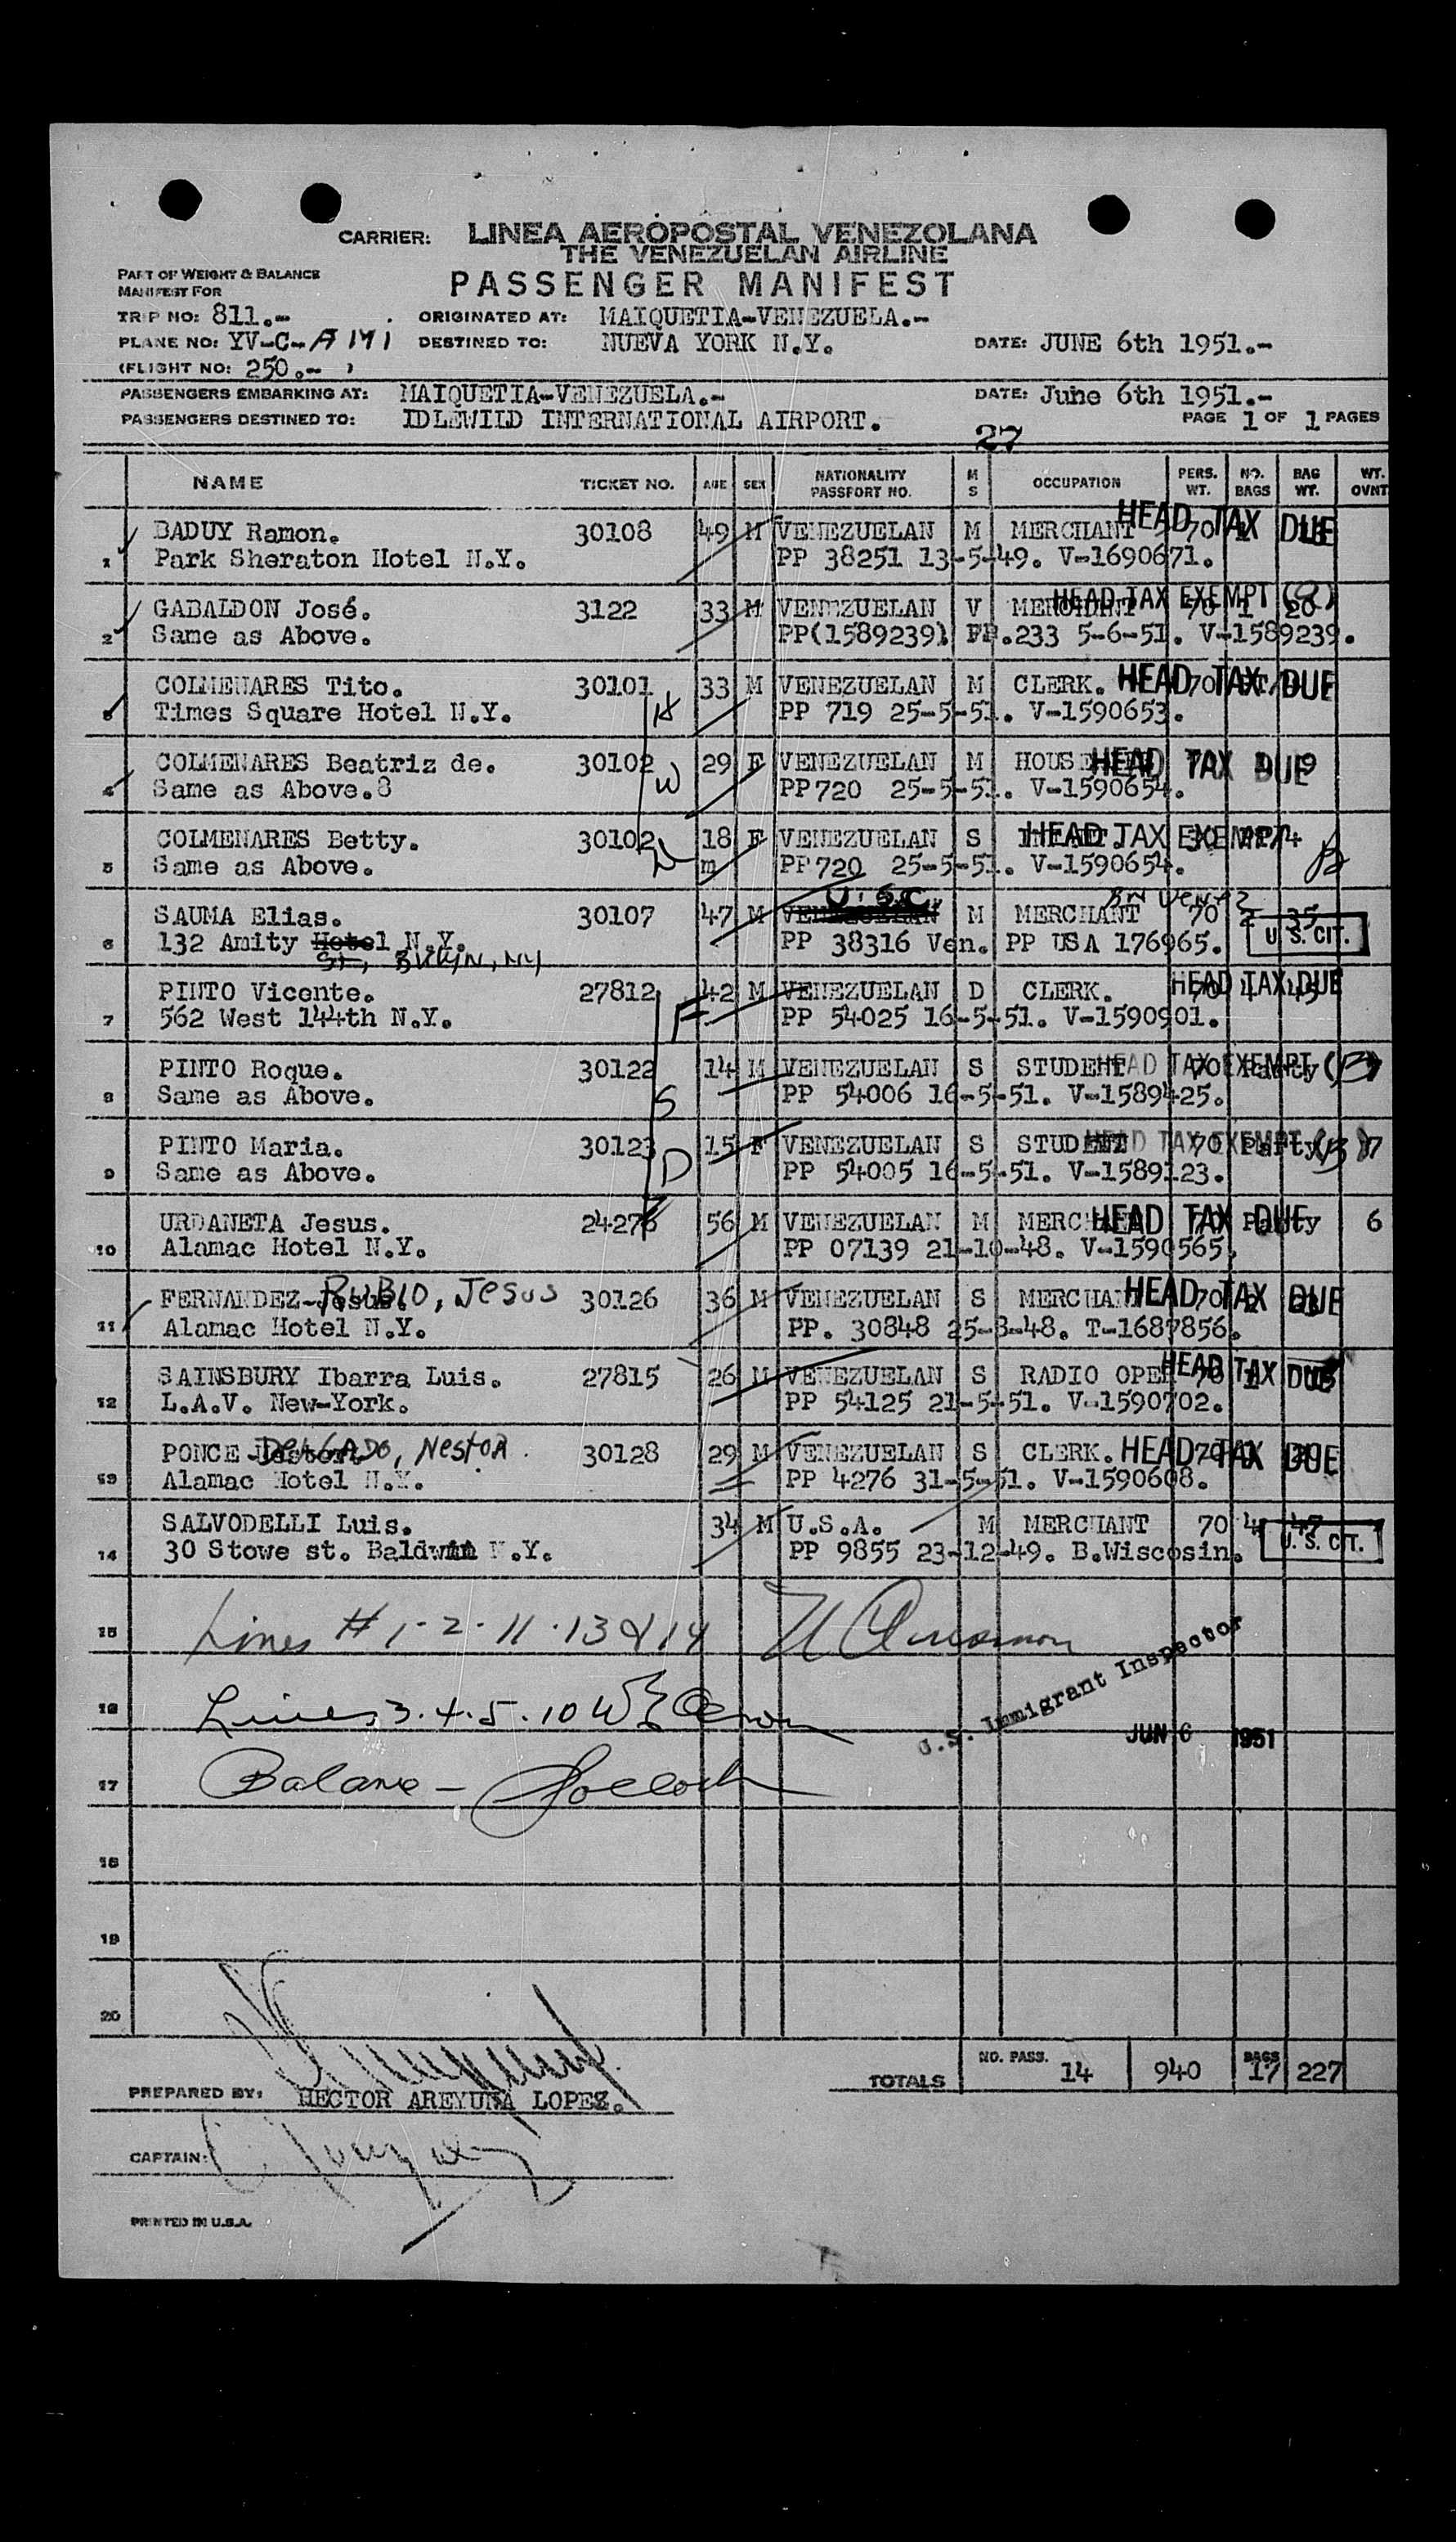 CARRIER: LINEA AEROPOSTAL VENEZOLANA
THE VENEZUELAN AIRLINE
PART OF WEIGHT & BALANCE
MANIFEST FOR
PASSENGER MANIFEST
TRIP NO: 811.- ORIGINATED AT: MAIQUETIA-VENEZUELA.-
PLANE NO: YV-C-A 141 DESTINED TO: NUEVA YORK N.Y. DATE: JUNE 6th 1951.-
(FLIGHT NO: 250.- )
PASSENGERS EMBARKING AT: MAIQUETIA-VENEZUELA.- DATE: June 6th 1951.-
PASSENGERS DESTINED TO: IDLEWILD INTERNATIONAL AIRPORT. PAGE 1 OF 1 PAGES
27
NAME TICKET NO. AGE SEX NATIONALITY PASSPORT NO. M S OCCUPATION PERS. WT. NO. BAGS BAG WT. WT. OVNT
1 BADUY Ramon. 30108 49 M VENEZUELAN M MERCHANT 70 HEAD TAX DUE
Park Sheraton Hotel N.Y. PP 38251 13-5-49. V-1690671.
2 GABALDON José. 3122 33 M VENEZUELAN V HEAD TAX EXEMPT 70 1 20
Same as Above. PP(1589239) FP.233 5-6-51. V-1589239.
3 COLMENARES Tito. 30101 33 M VENEZUELAN M CLERK. HEAD TAX DUE 70
Times Square Hotel N.Y. H PP 719 25-5-51. V-1590653.
4 COLMENARES Beatriz de. 30102 29 F VENEZUELAN M HEAD TAX DUE 9
Same as Above.8 W PP 720 25-5-51. V-1590654.
5 COLMENARES Betty. 30102 18 F VENEZUELAN S HEAD TAX EXEMPT
Same as Above. m PP 720 25-5-51. V-1590654. B
U.S.C. Bn Venez
6 SAUMA Elias. 30107 47 M VENEZUELAN M MERCHANT 70 2 35
132 Amity Hotel N.Y. PP 38316 Ven. PP USA 176965. U.S. CIT.
St, Bklyn, NY
7 PINTO Vicente. 27812 42 M VENEZUELAN D CLERK. HEAD TAX DUE
562 West 144th N.Y. F PP 54025 16-5-51. V-1590901.
8 PINTO Roque. 30122 14 M VENEZUELAN S STUDENT HEAD TAX EXEMPT 70 Party (B)
Same as Above. S PP 54006 16-5-51. V-1589425.
9 PINTO Maria. 30123 15 F VENEZUELAN S STUDENT HEAD TAX EXEMPT 70 Party (B) 7
Same as Above. D PP 54005 16-5-51. V-1589123.
10 URDANETA Jesus. 24276 56 M VENEZUELAN M HEAD TAX DUE 70 Party 6
Alamac Hotel N.Y. PP 07139 21-10-48. V-1590565.
11 FERNANDEZ-Jesus. RUBIO, Jesus 30126 36 M VENEZUELAN S MERCHANT HEAD TAX DUE 70
Alamac Hotel N.Y. PP. 30848 25-8-48. T-1687856.
12 SAINSBURY Ibarra Luis. 27815 26 M VENEZUELAN S RADIO OPER HEAD TAX DUE 70 1
L.A.V. New-York. PP 54125 21-5-51. V-1590702.
13 PONCE DELGADO, Nestor. 30128 29 M VENEZUELAN S CLERK. HEAD TAX DUE 70
Alamac Hotel N.Y. PP 4276 31-5-51. V-1590608.
14 SALVODELLI Luis. 34 M U.S.A. M MERCHANT 70 4 47
30 Stowe st. Baldwin N.Y. PP 9855 23-12-49. B.Wiscosin. U.S. CIT.
15 Lines # 1-2-11-13 & 14
U.S. Immigrant Inspector
16 Lines 3.4.5.10
JUN 6 1951
17 Balance -
18
19
20
TOTALS NO. PASS. 14 940 BAGS 17 227
PREPARED BY: HECTOR AREYUNA LOPEZ.
CAPTAIN:
PRINTED IN U.S.A.